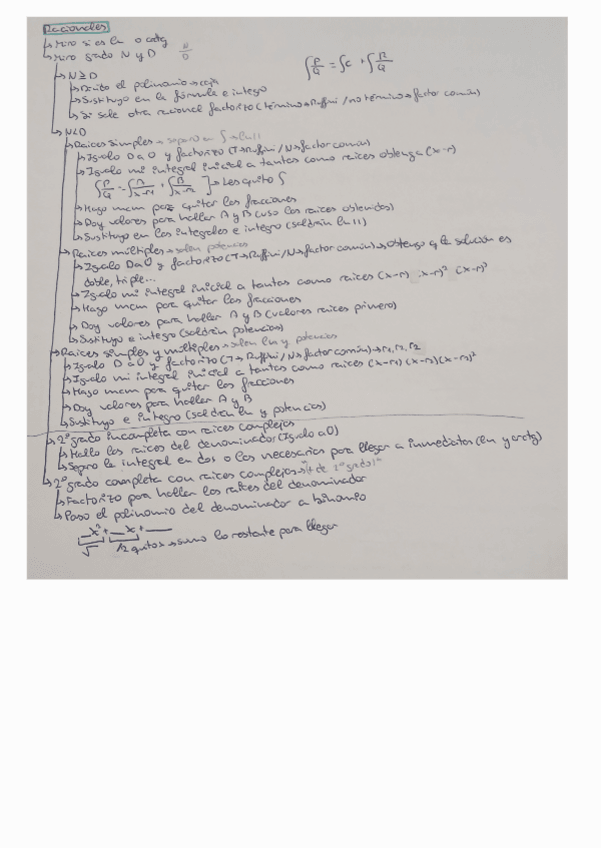 Racionales
↳ Miro si es ln o arctg
↳ Miro grado N y D N/D
∫P/Q = ∫C + ∫R/Q
↳ N≥D
↳ Divido el polinomio → caja
↳ Sustituyo en la fórmula e integro
↳ Si sale otra racional factorizo (término → Ruffini / no término → factor común)
↳ N<D
↳ Raíces simples → separo en ∫ → ln | |
↳ Igualo D a 0 y factorizo (T → Ruffini / N → factor común)
↳ Igualo mi integral inicial a tantas como raíces obtenga (x-r)
∫P/Q = ∫A/x-r1 + ∫B/x-r2 ] → Les quito ∫
↳ Hago mcm para quitar las fracciones
↳ Doy valores para hallar A y B (uso las raíces obtenidas)
↳ Sustituyo en las integrales e integro (saldrán ln | |)
↳ Raíces múltiples → salen potencias
↳ Igualo D a 0 y factorizo (T → Ruffini / N → factor común) → obtengo q la solución es
doble, triple...
↳ Igualo mi integral inicial a tantas como raíces (x-r) (x-r)² (x-r)³
↳ Hago mcm para quitar las fracciones
↳ Doy valores para hallar A y B (valores raíces primero)
↳ Sustituyo e integro (saldrán potencias)
↳ Raíces simples y múltiples → salen ln y potencias
↳ Igualo D a 0 y factorizo (T → Ruffini / N → factor común) → r1, r2, r2
↳ Igualo mi integral inicial a tantas como raíces (x-r1) (x-r2) (x-r2)²
↳ Hago mcm para quitar las fracciones
↳ Doy valores para hallar A y B
↳ Sustituyo e integro (saldrán ln y potencias)
↳ 2º grado incompleta con raíces complejas
↳ Hallo las raíces del denominador (Igualo a 0)
↳ Separo la integral en dos o las necesarias para llegar a inmediatas (ln y arctg)
↳ 2º grado completa con raíces complejas
↳ Factorizo para hallar las raíces del denominador
↳ Paso el polinomio del denominador a binomio
_x² + _x + _
√ /2 quitox → sumo lo restante para llegar